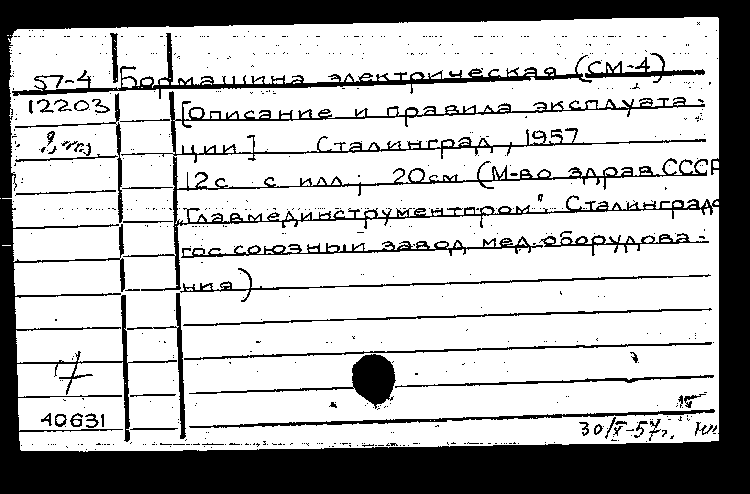 57-4 Бормашина электрическая (СМ-4)
12203 [Описание и правила эксплуата-
ции]. Сталинград, 1957
12с с илл; 20см (М-во здрав. СССР
"Главмединструментпром". Сталинградс
гос союзный завод мед. оборудова-
ния).
40631
30/X-57г.